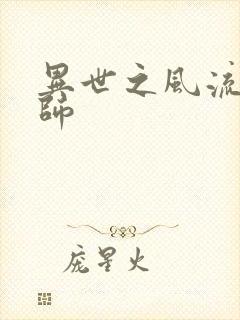 異世之風流
師
庞星火